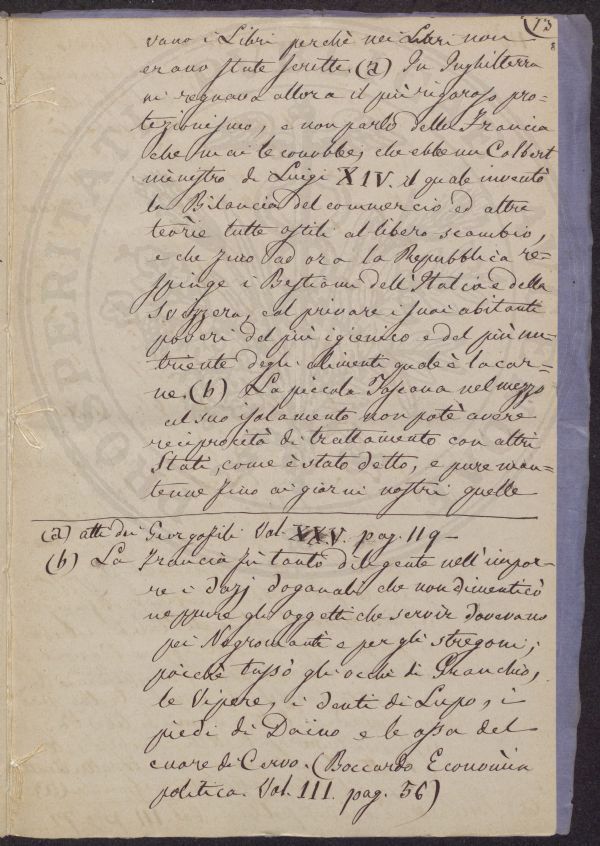 13
vano i Libri perchè nei Libri non
erano state scritte. (a) In Inghilterra
vi regnava allora il più rigoroso pro-
tezionismo, e non parlo della Francia
che mai le conobbe, che ebbe un Colbert
ministro di Luigi XIV. il quale inventò
la Bilancia del commercio ed altre
teorie tutte ostili al libero scambio,
e che fino ad ora la Repubblica re-
spinge i Bestiami dell'Italia e della
Svizzera, e al privare i suoi abitanti
poveri del più igienico e del più nu-
triente degli alimenti qual'è la car-
ne. (b) La piccola Toscana nel mezzo
al suo isolamento non potè avere
reciprocità di trattamento con altri
Stati, come è stato detto, e pure man-
tenne fino ai giorni nostri quelle
(a) atti dei Georgofili Vol. XXV. pag. 119-
(b) La Francia fù tanto diligente nell'impor-
re i dazj doganali che non dimenticò
neppure gli oggetti che servir dovevano
pei Negromanti e per gli stregoni;
poichè tassò gli occhi di Granchio,
le Vipere, i denti di Lupo, i
piedi di Daino e le ossa del
cuore di Cervo. (Boccardo Economia
politica. Vol. III. pag. 56)